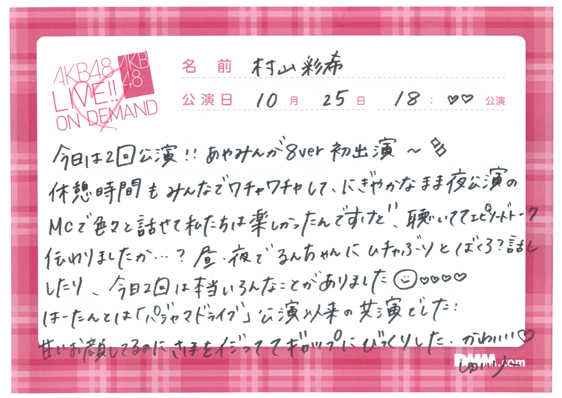 AKB48
LIVE!!
ON DEMAND
AKB
48
名前 村山彩希
公演日 10月25日 18:♡♡公演
今日は2回公演!! あやみんが8ver初出演〜
休憩時間もみんなでワチャワチャして、にぎやかなまま夜公演の
MCで色々と話せて私たちは楽しかったんですけど、聴いててエピソードトーク
伝わりましたか…? 昼・夜でるんちゃんにムチャぶりとばくろ?話し
したり、今日2回は本当いろんなことがありました♡♡♡♡
はーたんとは「パジャマドライブ」公演以来の共演でした:
甘いお顔してるのにさほをイジっててギャップにびっくりした。かわいい♡
DMM.com